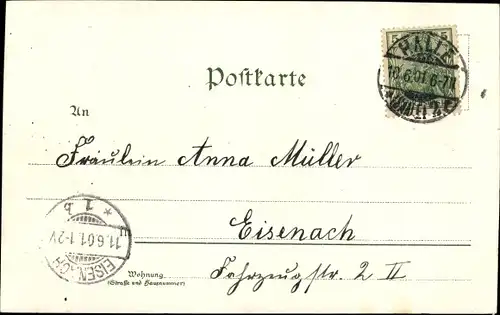 5 5
HALLE
10.6.01.6-7N
Postkarte
An
Fräulein Anna Müller
Eisenach
* 1 b
11.6.01.1-2V.
EISENACH
Wohnung
(Straße und Hausnummer)
Fahrzeugstr. 2 II